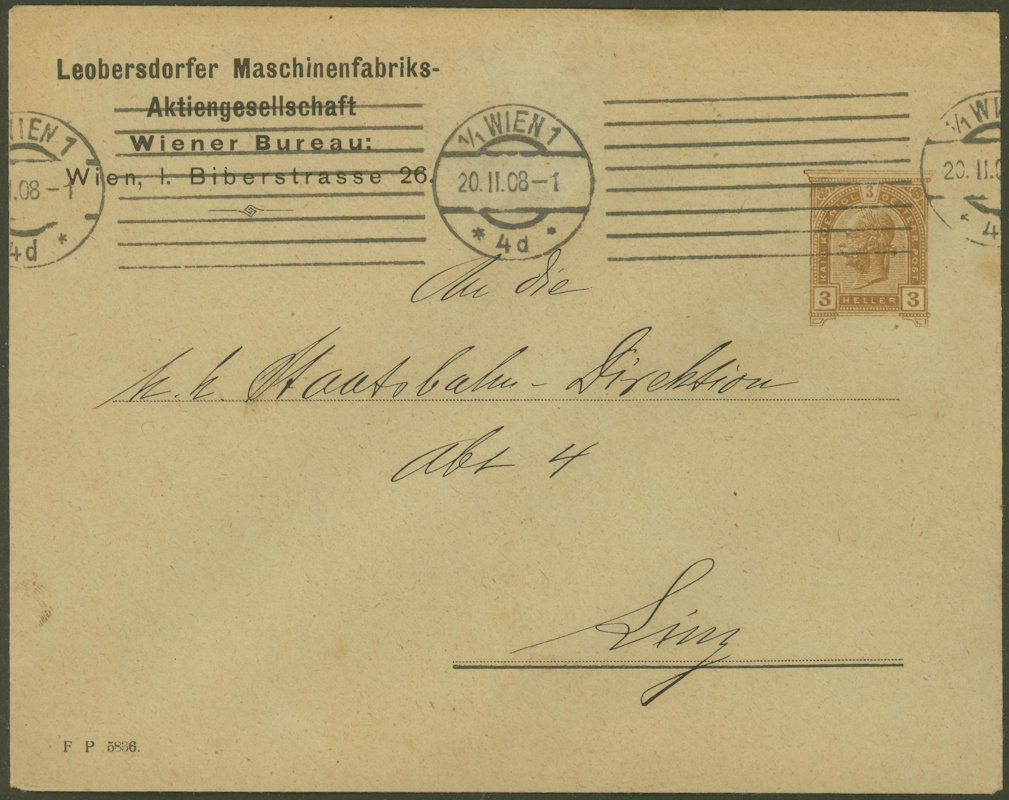 Leobersdorfer Maschinenfabriks-
Aktiengesellschaft
Wiener Bureau:
Wien, I. Biberstrasse 26.
WIEN 1
.08-1
4d *
1/1 WIEN 1
20.II.08-1
* 4d *
1/1 WI
20.II.0
* 4
3
3 HELLER 3
An die
k. k. Staatsbahn-Direktion
Abt 4
Linz
F P 5836.